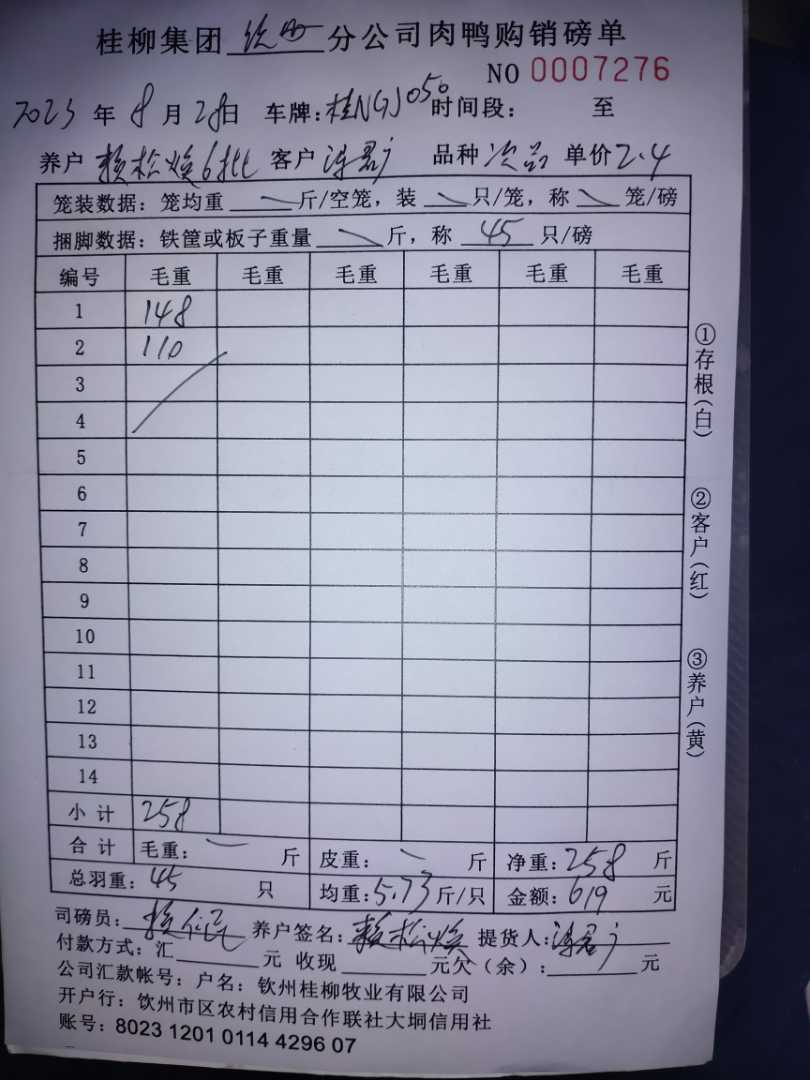 桂柳集团 钦州 分公司肉鸭购销磅单
NO 0007276
2023 年 8 月 28 日 车牌: 桂NGJ050 时间段: 至
养户 赖松焕6批 客户 单价 2.4 品种 次品
笼装数据: 笼均重 斤/空笼, 装 只/笼, 称 笼/磅
捆脚数据: 铁筐或板子重量 斤, 称 45 只/磅
编号 毛重 毛重 毛重 毛重 毛重 毛重
1 148
2 110
3
4
5
6
7
8
9
10
11
12
13
14
小计 258
合计 毛重: 斤 皮重: 斤 净重: 258 斤
总羽重: 45 只 均重: 5.73 斤/只 金额: 619 元
司磅员: 养户签名: 赖松焕 提货人:
付款方式: 汇 元 收现 元欠(余): 元
公司汇款帐号: 户名: 钦州桂柳牧业有限公司
开户行: 钦州市区农村信用合作联社大垌信用社
账号: 8023 1201 0114 4296 07
①存根(白)
②客户(红)
③养户(黄)